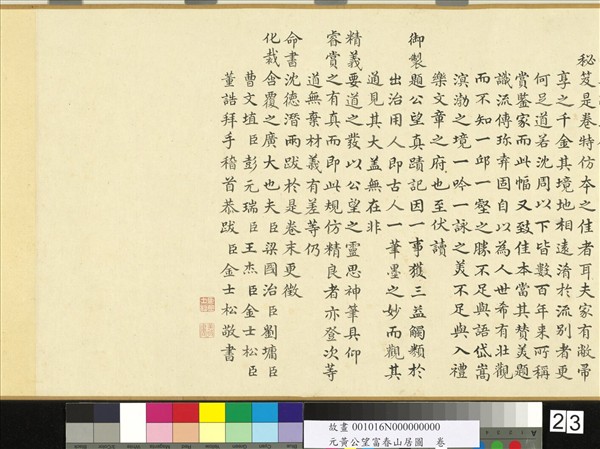 秘笈是卷特仿本之佳者耳夫家有敝帚
享之千金其境地相遠淆於流別者更
何足道若沈周以下皆數百年来所稱
賞鑒家而此幅又致佳本當其賛美題
識流傳珎弆固自以為人世希有壯觀
而不知一邱一壑之勝不足與語岱嵩
溟渤之境一吟一詠之美不足與入禮
樂文章之府也至伏讀
御製題公望真蹟記因一事獲三益觸類於
出治用人即古人一筆墨之妙而觀其
道見其大盖無在非
精義要道之發以公望之靈思神筆具仰
睿賞之有真而即此規仿精良者亦登次等
道無棄材義有差等仍
命書沈德潛兩跋於是卷末更徵
化裁含覆之廣大也夫臣梁國治臣劉墉臣
曹文埴臣彭元瑞臣王杰臣金士松臣
董誥拜手稽首恭跋 臣金士松敬書
故畫 001016N000000000
元黃公望富春山居圖 卷
23